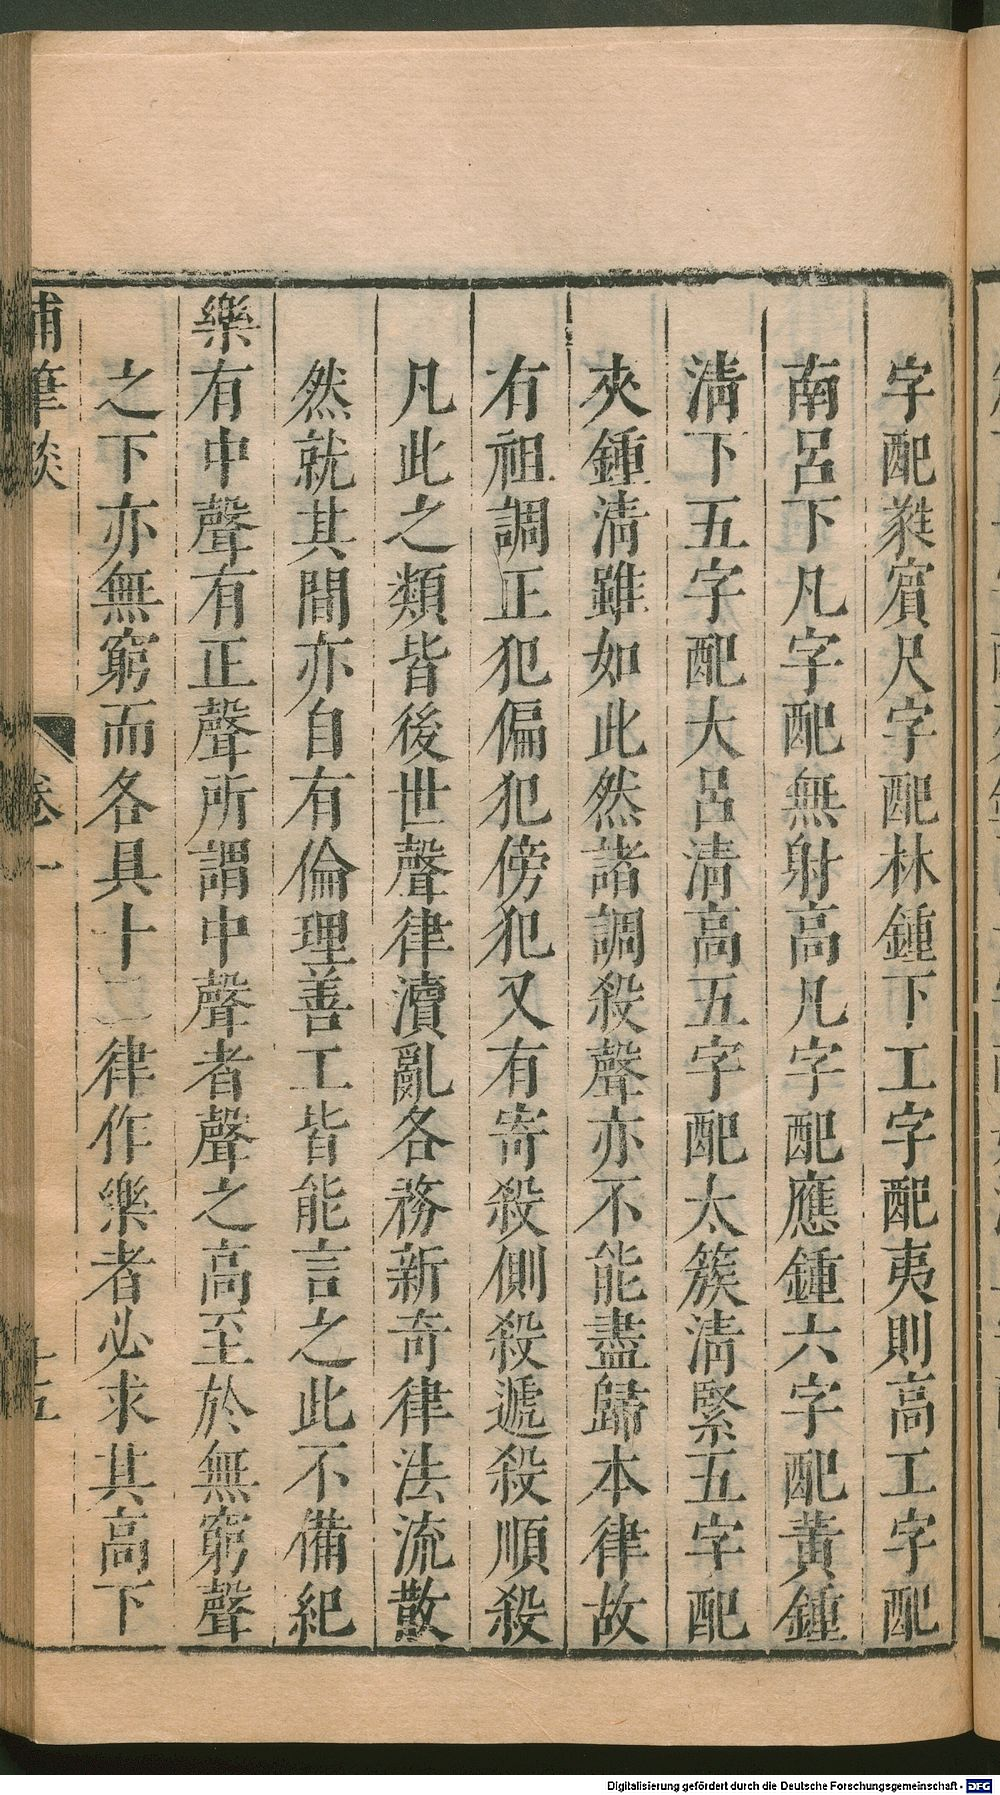 字配蕤賓尺字配林鍾下工字配夷則高工字配
南呂下凡字配無射高凡字配應鍾六字配黃鍾
淸下五字配大呂淸高五字配太簇淸緊五字配
夾鍾淸雖如此然諸調殺聲亦不能盡歸本律故
有祖調正犯偏犯傍犯又有寄殺側殺遞殺順殺
凡此之類皆後世聲律瀆亂各務新奇律法流散
然就其間亦自有倫理善工皆能言之此不備紀
樂有中聲有正聲所謂中聲者聲之高至於無窮聲
之下亦無窮而各具十二律作樂者必求其高下
補筆談 卷一 十五
Digitalisierung gefördert durch die Deutsche Forschungsgemeinschaft - DFG